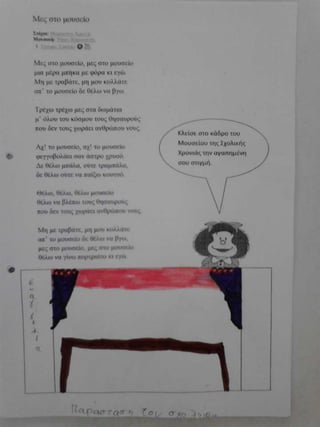 Μες στο μουσείο
Στίχοι:
Μουσική:
Μες στο μουσείο, μες στο μουσείο
μια μέρα μπήκα με φόρα κι εγώ.
Μη με τραβάτε, μη μου κολλάτε
απ' το μουσείο δε θέλω να βγω.
Τρέχω τρέχω μες στα δωμάτια
μ' όλου του κόσμου τους θησαυρούς
που δεν τους χωράει ανθρώπου νους.
Αχ! το μουσείο, αχ! το μουσείο
φεγγοβολάει σαν άστρο χρυσό.
Δε θέλω μπάλα, ούτε τραμπάλα,
δε θέλω ούτε να παίξω κουτσό.
Θέλω, θέλω, θέλω μουσείο
θέλω να βλέπω τους θησαυρούς
που δεν τους χωράει ανθρώπου νους.
Μη με τραβάτε, μη μου κολλάτε
απ' το μουσείο δε θέλω να βγω,
μες στο μουσείο, μες στο μουσείο
θέλω να γίνω πορτραίτο κι εγώ.
Κλείσε στο κάδρο του
Μουσείου της Σχολικής
Χρονιάς την αγαπημένη
σου στιγμή.
Ευαγγελία
Παράσταση του σχολείου